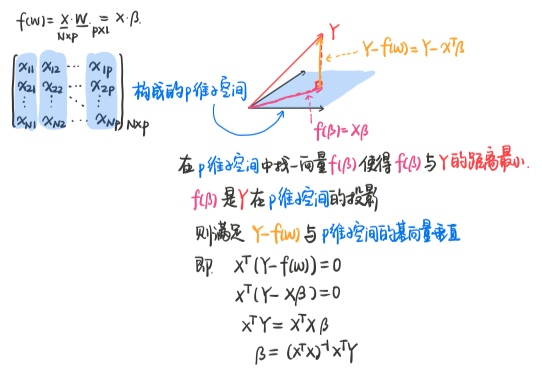 f(w) = X · W = X · β.
N×p p×1
x11 x12 ⋯ x1p
x21 x22 ⋯ x2p
⋮ ⋮ ⋱ ⋮
xN1 xN2 ⋯ xNp N×p
构成的p维子空间
Y
Y-f(w)=Y-xᵀβ
f(β)=Xβ
在p维子空间中找一向量f(β)使得f(β)与Y的距离最小.
f(β)是Y在p维子空间的投影
则满足 Y-f(w)与p维子空间的基向量垂直
即 xᵀ(Y-f(w))=0
xᵀ(Y-Xβ)=0
xᵀY=xᵀXβ
β=(xᵀx)⁻¹xᵀY